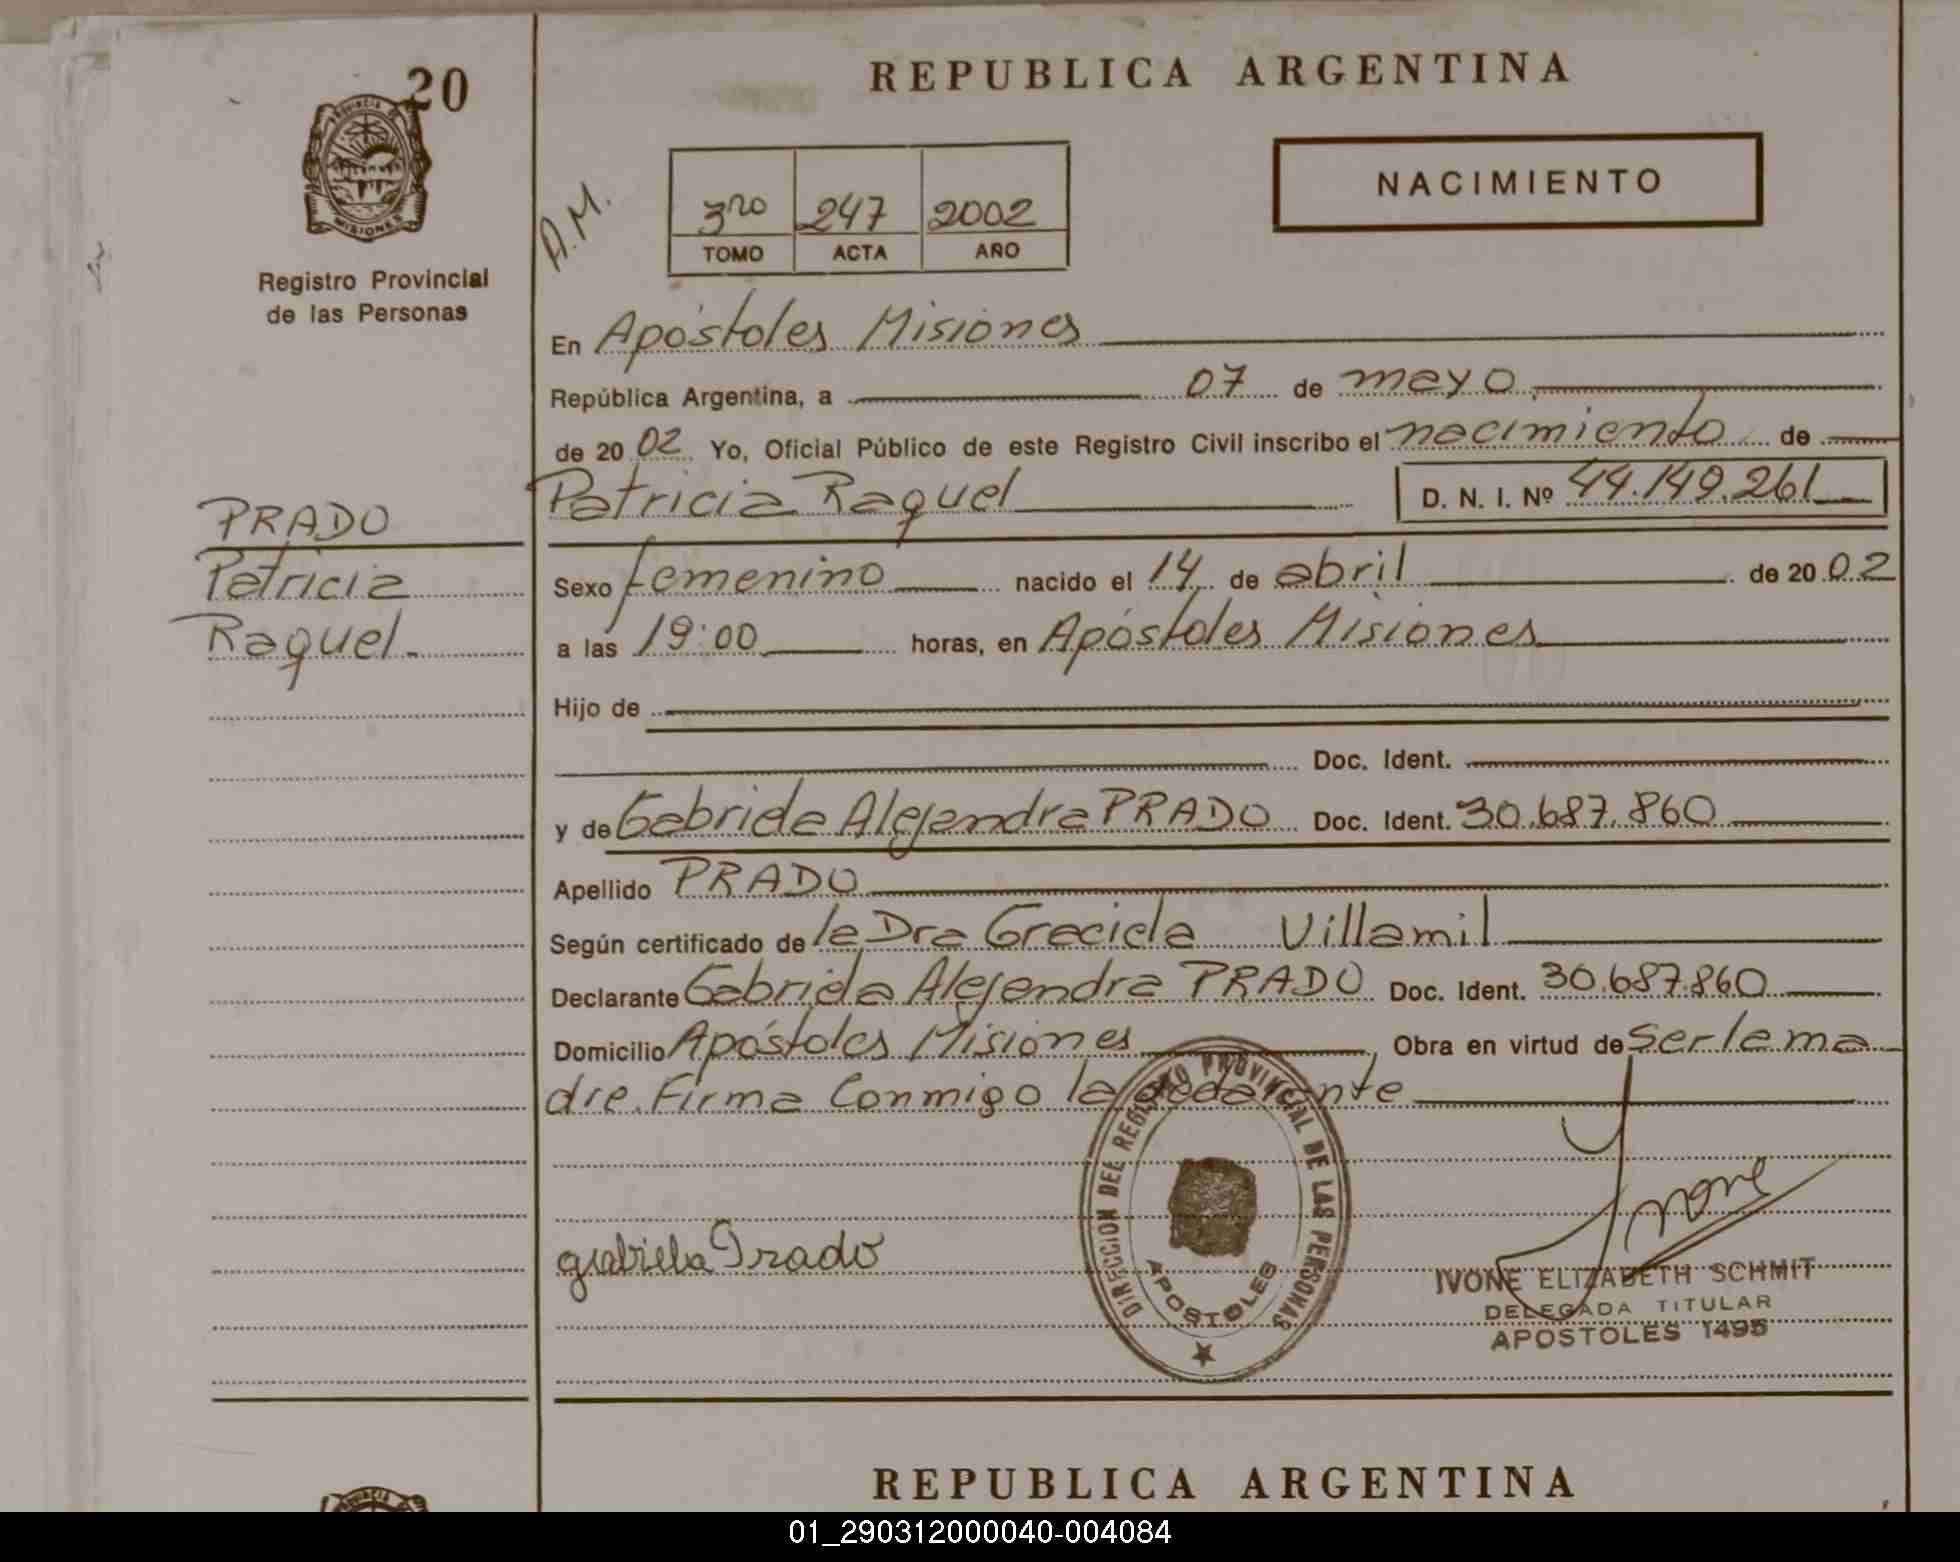 20
PROVINCIA DE
MISIONES
Registro Provincial
de las Personas
PRADO
Patricia
Raquel.
REPUBLICA ARGENTINA
NACIMIENTO
A.M.
3ro 247 2002
TOMO ACTA AÑO
En Apóstoles Misiones
República Argentina, a 07 de mayo
de 20 02 Yo, Oficial Público de este Registro Civil inscribo el nacimiento de
Patricia Raquel D. N. I. Nº 44.149.261
Sexo femenino nacido el 14 de abril de 20 02
a las 19:00 horas, en Apóstoles Misiones
Hijo de
Doc. Ident.
y de Gabriela Alejandra PRADO Doc. Ident. 30.687.860
Apellido PRADO
Según certificado de la Dra Graciela Villamil
Declarante Gabriela Alejandra PRADO Doc. Ident. 30.687.860
Domicilio Apóstoles Misiones Obra en virtud de ser la ma
dre. Firma Conmigo la declarante
DIRECCION DEL REGISTRO PROVINCIAL DE LAS PERSONAS
APOSTOLES
gabriela Prado
Ivone
IVONE ELIZABETH SCHMIT
DELEGADA TITULAR
APOSTOLES 1495
REPUBLICA ARGENTINA
01_290312000040-004084